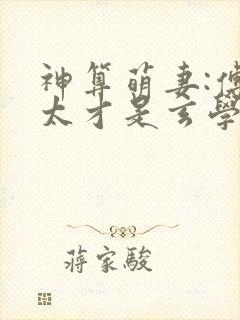 神算萌妻:傅
太才是玄學
蔣家駿